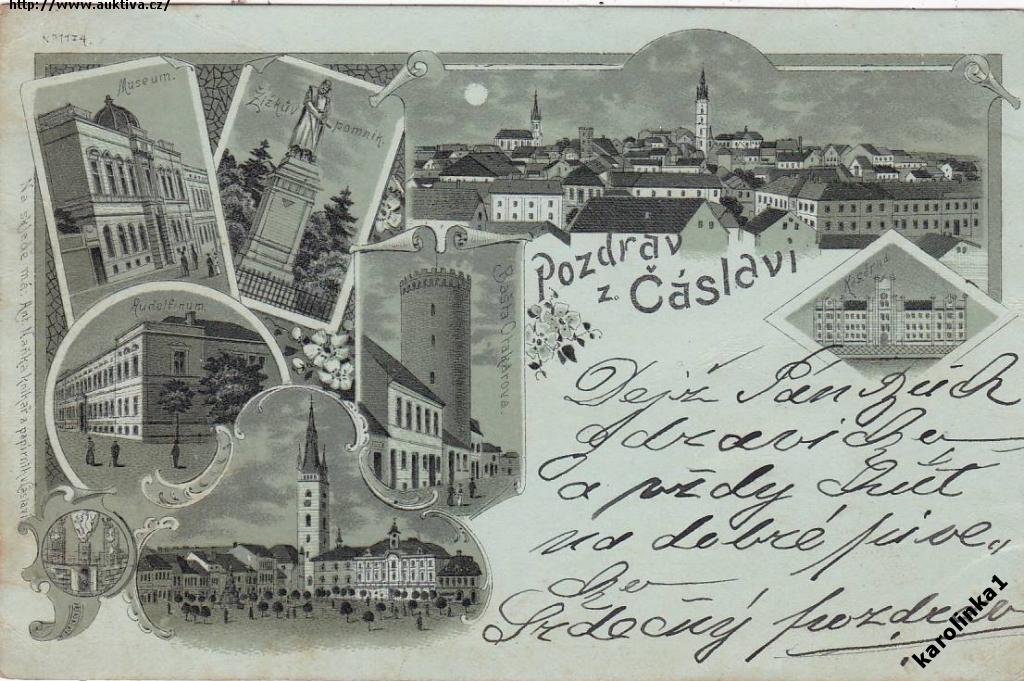 http://www.auktiva.cz/
Museum.
Žižkův
pomník.
Rudolfinum.
Bašta Otakarova.
Pozdrav
z Čáslavi
Kasárna
Na skladě má: Ant. Kařka knihař a papírník v Čáslavi
Dejž Pán Bůh
zdravíčko
a vždy chuť
na dobré pive„
čko
Srdečný pozdrav
karolinka1